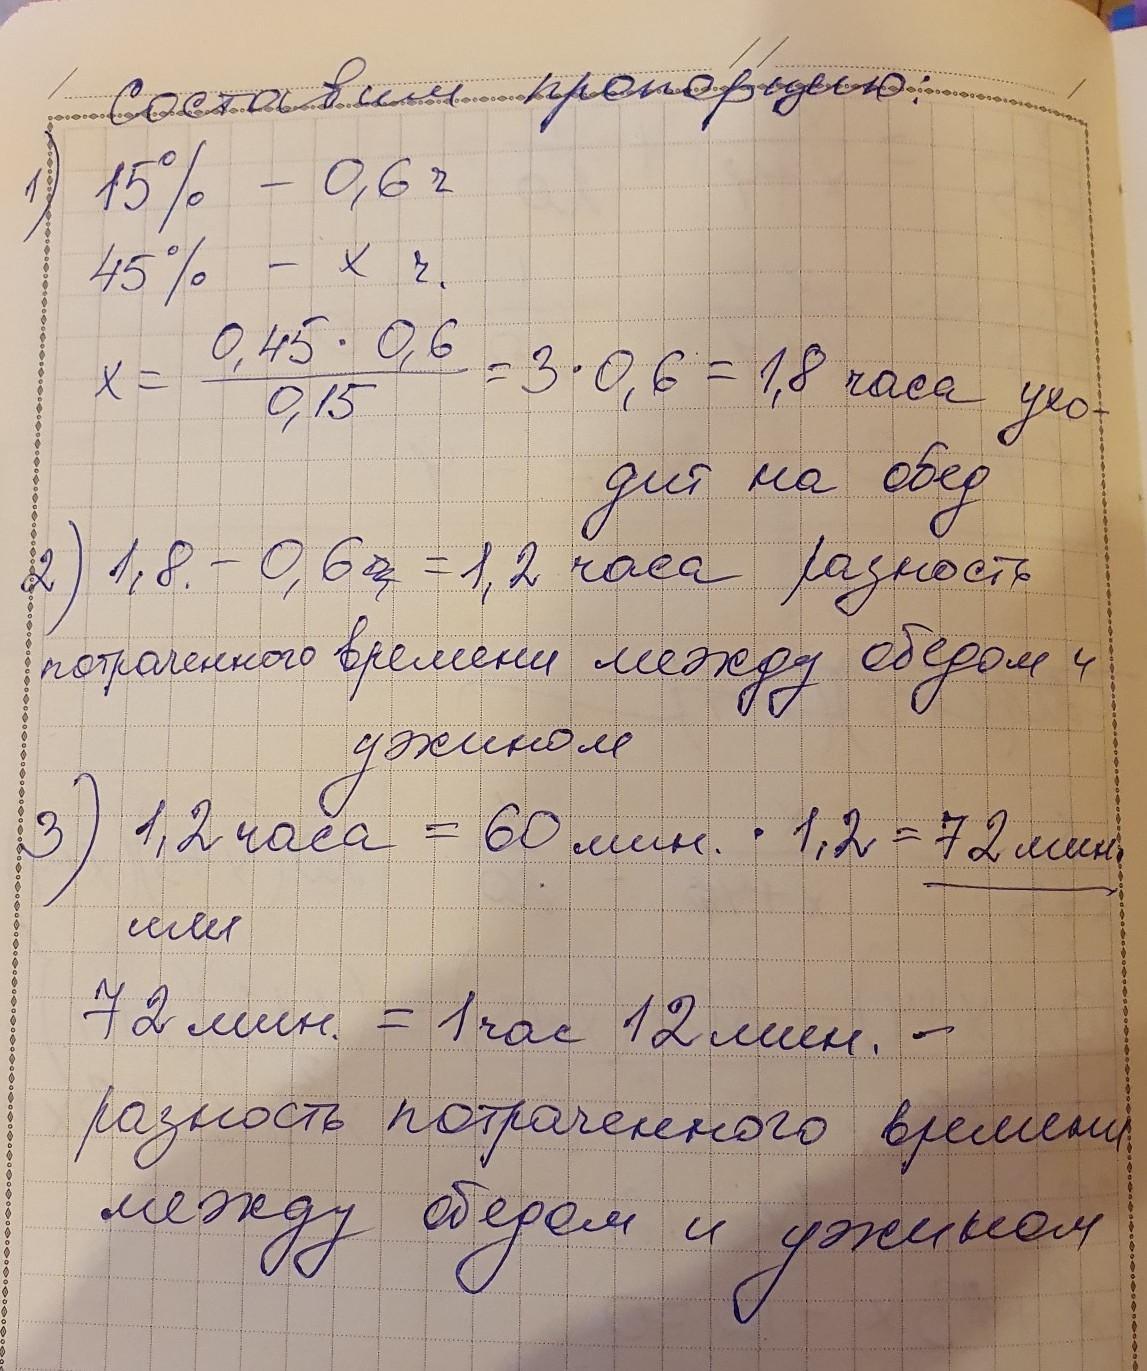 Составим пропорцию:
1) 15% - 0,6 ч
45% - x ч.
x = 0,45 · 0,6 / 0,15 = 3 · 0,6 = 1,8 часа ухо-
дит на обед
2) 1,8. - 0,6 = 1,2 часа разность
потраченного времени между обедом и
ужином
3) 1,2 часа = 60 мин. · 1,2 = 72 мин.
или
72 мин. = 1 час 12 мин. -
разность потраченного времени
между обедом и ужином